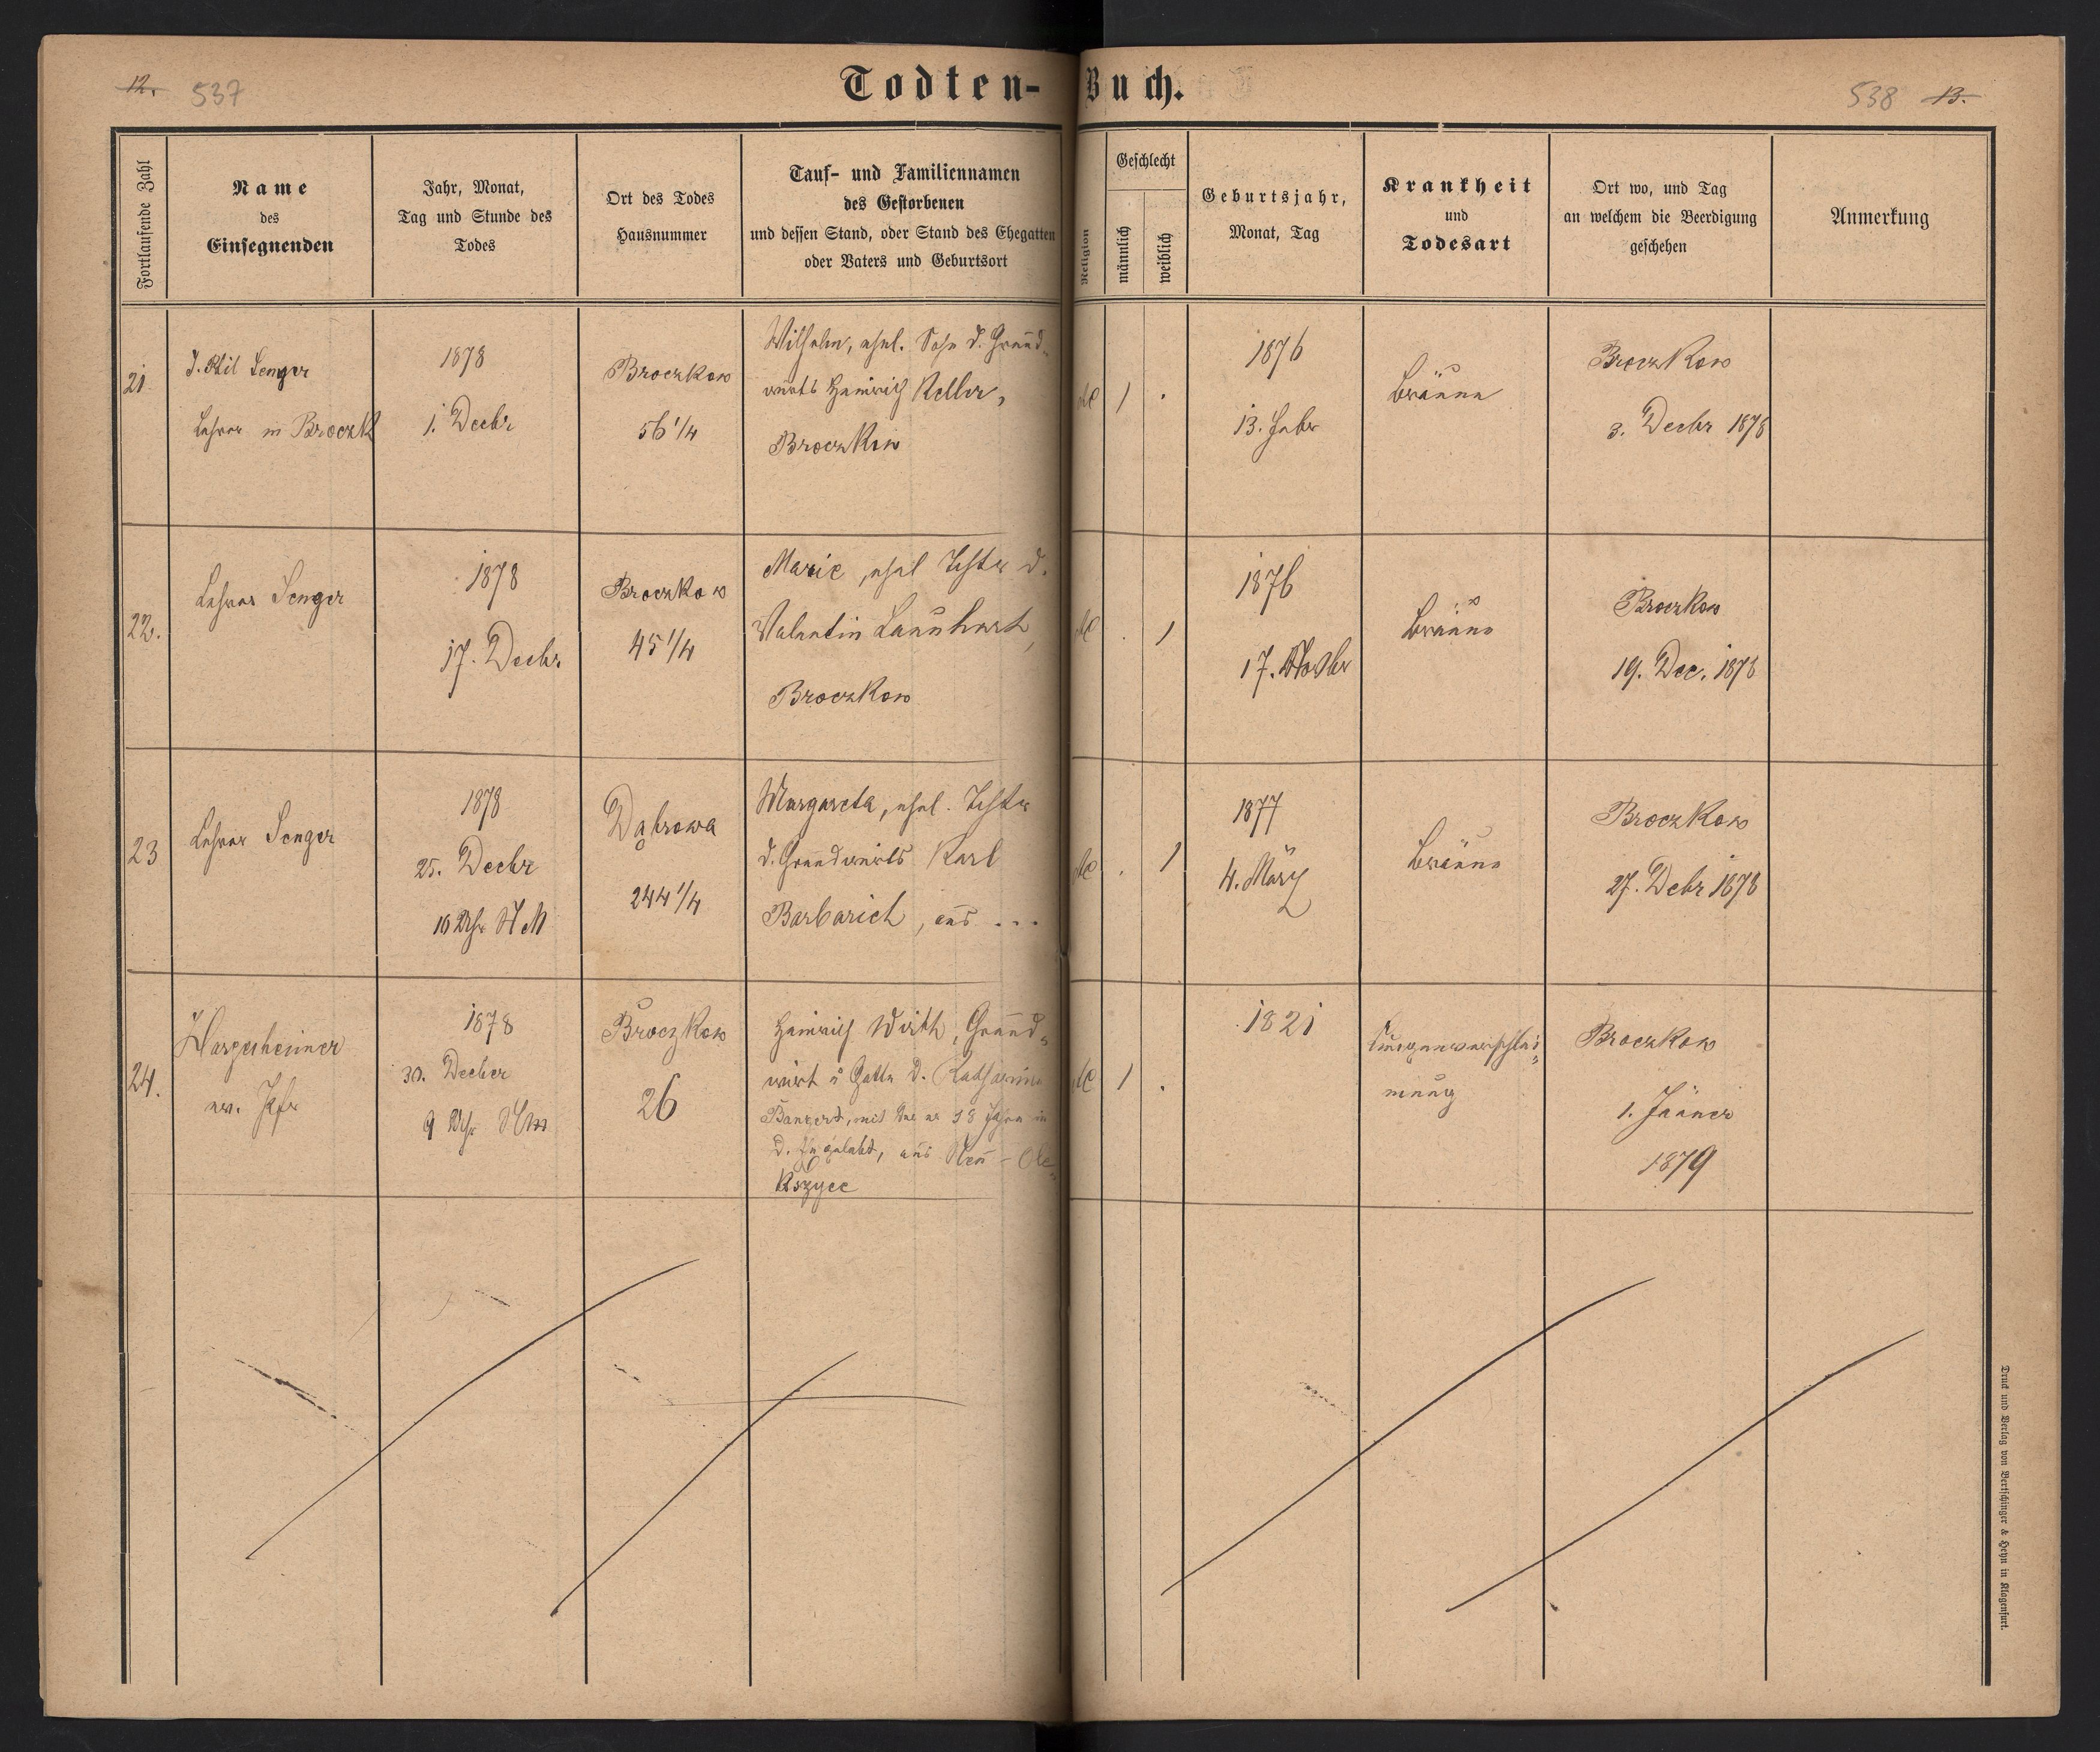 12. 537
Todten-Buch.
538 13.
Fortlaufende Zahl
Name
des
Einsegnenden
Jahr, Monat,
Tag und Stunde des
Todes
Ort des Todes
Hausnummer
Tauf- und Familiennamen
des Gestorbenen
und dessen Stand, oder Stand des Ehegatten
oder Vaters und Geburtsort
Religion
Geschlecht
männlich
weiblich
Geburtsjahr,
Monat, Tag
Krankheit
und
Todesart
Ort wo, und Tag
an welchem die Beerdigung
geschehen
Anmerkung
21.
J. Senger
Lehrer in Broczk
1878
1. Decbr
Broczkow
56 1/4
Wilhelm, ehel. Sohn d. Grund-
wirts Heinrich Keller,
Broczkow
1
1876
13. Febr
Bräune
Broczkow
3. Decbr 1878
22.
Lehrer Senger
1878
17. Decbr.
Broczkow
45 1/4
Marie, ehel Tchtr d.
Valentin Launhart,
Broczkow
1
1876
17.
Bräune
Broczkow
19. Dec. 1878
23
Lehrer Senger
1878
25. Decbr
10 Uhr N M
Dąbrowa
244 1/4
Margareta, ehel. Tchtr
d. Grundwirts Karl
Barbarich, aus ...
1
1877
4. März
Bräune
Broczkow
27. Debr 1878
24.
Hargesheimer
ev. Pfr
1878
30. Decber
9 Uhr
Broczkow
26
Heinrich Wirth, Grund-
wirt u Gatte d. Katharina
Bangert, mit der er 38 Jahre in
d. Ehe gelebt, aus Neu-Ole-
kszyce
1
1821
Lungenverschlei-
mung
Broczkow
1. Jänner
1879
Druck und Verlag von Bertschinger & Heyn in Klagenfurt.